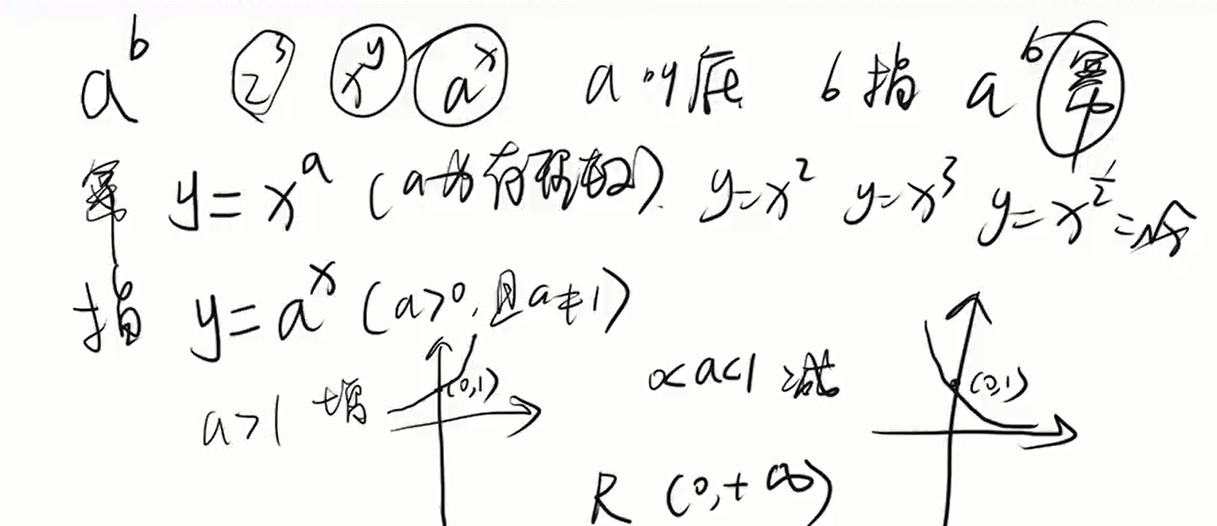 a^b 2^3 x^y a^x a叫底 b指 a^b幂
幂 y=x^a (a为有理数). y=x^2 y=x^3 y=x^{1/2}=√x
指 y=a^x (a>0,且a≠1)
a>1 增 (0,1) 0<a<1 减 (0,1)
R (0,+∞)